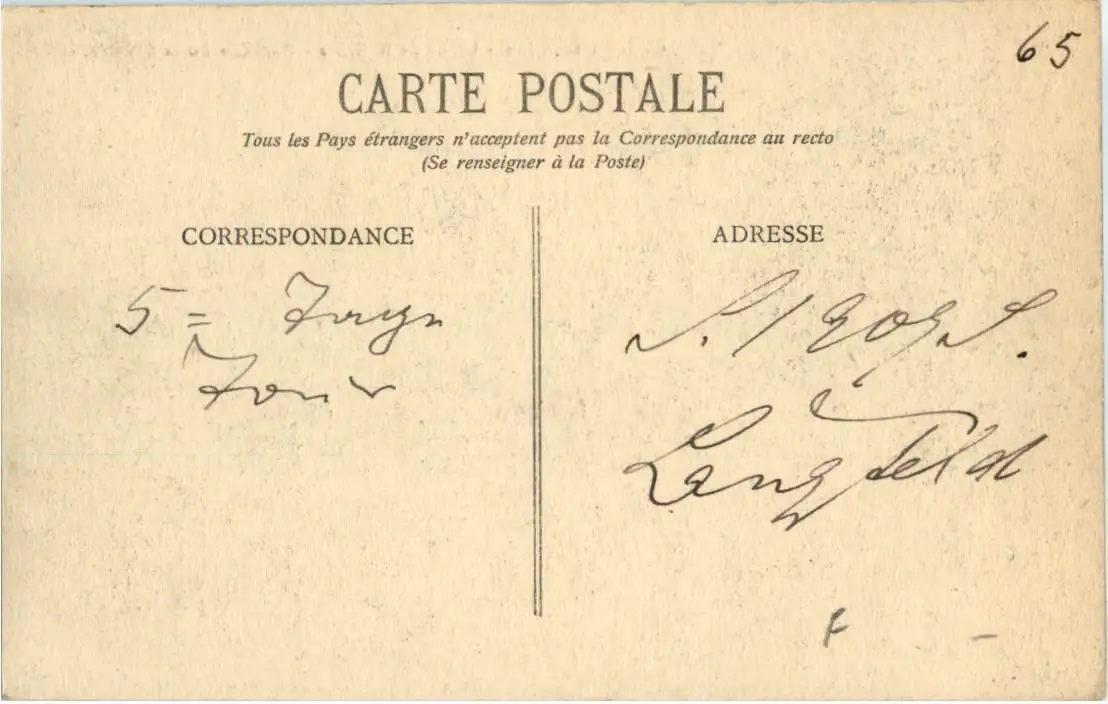 65
CARTE POSTALE
Tous les Pays étrangers n'acceptent pas la Correspondance au recto
(Se renseigner à la Poste)
CORRESPONDANCE
ADRESSE
5 =
Langfeld